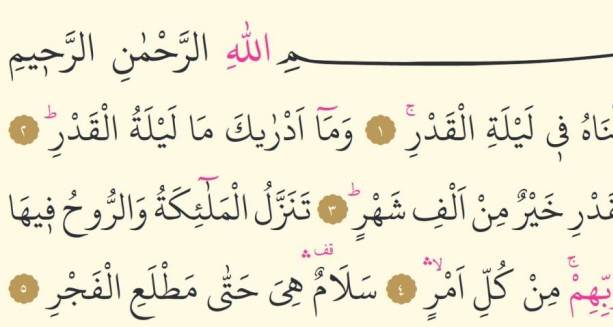 ـمِ اللّٰهِ الرَّحْمٰنِ الرَّح۪يمِ
نَاهُ ف۪ي لَيْلَةِ الْقَدْرِۚ ﴿١﴾ وَمَٓا اَدْرٰيكَ مَا لَيْلَةُ الْقَدْرِۜ ﴿٢﴾
قَدْرِ خَيْرٌ مِنْ اَلْفِ شَهْرٍۜ ﴿٣﴾ تَنَزَّلُ الْمَلٰٓئِكَةُ وَالرُّوحُ ف۪يهَا
رَبِّهِمْۚ مِنْ كُلِّ اَمْرٍۙۛ ﴿٤﴾ سَلَامٌ۠ۛ هِيَ حَتّٰى مَطْلَعِ الْفَجْرِ ﴿٥﴾